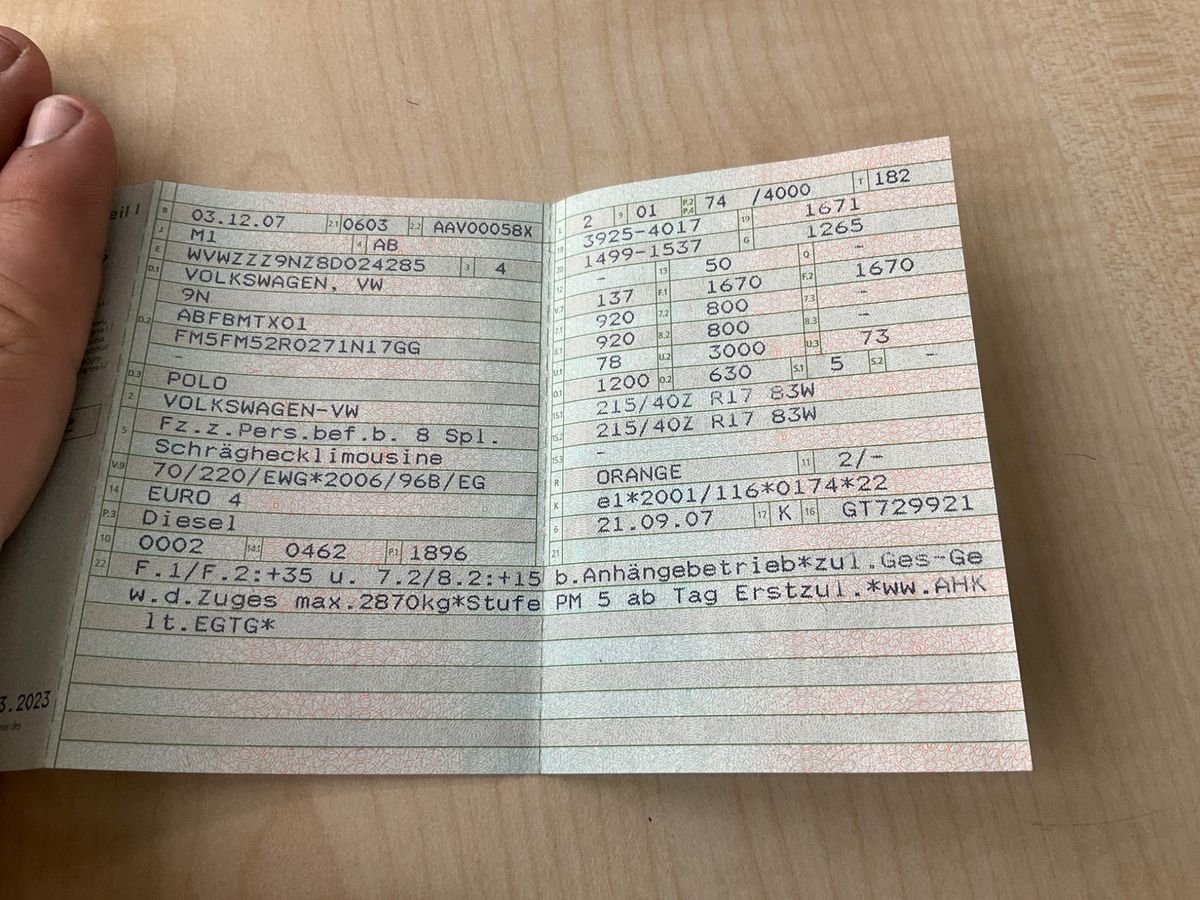 eil I
B 03.12.07 2.1 0603 2.2 AAV00058X
J M1 4 AB
E WVWZZZ9NZ8D024285 3 4
D.1 VOLKSWAGEN, VW
9N
D.2 ABFBMTX01
FM5FM52R0271N17GG
-
D.3 POLO
2 VOLKSWAGEN-VW
5 Fz.z.Pers.bef.b. 8 Spl.
Schräghecklimousine
V.9 70/220/EWG*2006/96B/EG
14 EURO 4
P.3 Diesel
10 0002 14.1 0462 P.1 1896
L 2 9 01 P.2 P.4 74 /4000 T 182
18 3925-4017 19 1671
20 1499-1537 G 1265
12 - 13 50 Q -
V.7 137 F.1 1670 F.2 1670
7.1 920 7.2 800 7.3 -
8.1 920 8.2 800 8.3 -
U.1 78 U.2 3000 U.3 73
O.1 1200 O.2 630 S.1 5 S.2 -
15.1 215/40Z R17 83W
15.2 215/40Z R17 83W
15.3 -
R ORANGE 11 2/-
K e1*2001/116*0174*22
6 21.09.07 17 K 16 GT729921
21
22 F.1/F.2:+35 u. 7.2/8.2:+15 b.Anhängebetrieb*zul.Ges-Ge
w.d.Zuges max.2870kg*Stufe PM 5 ab Tag Erstzul.*ww.AHK
lt.EGTG*
3.2023